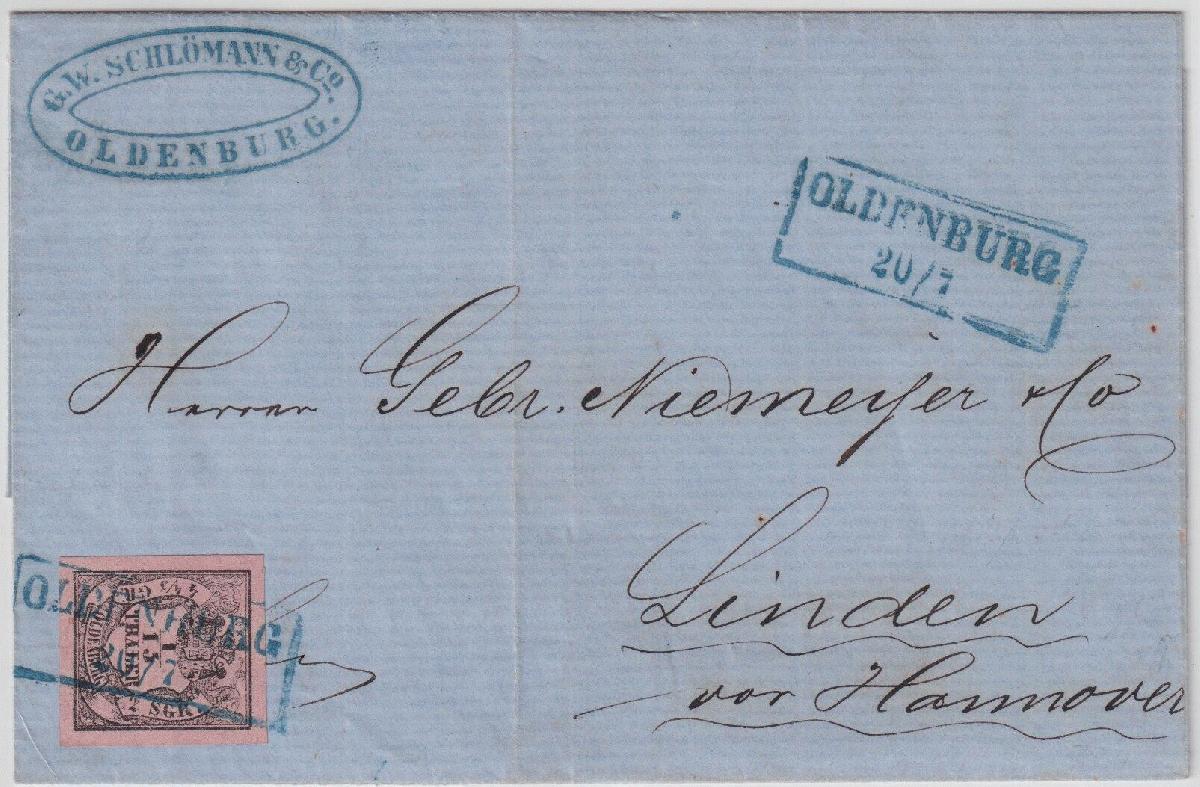 G.W. SCHLÖMANN & Co.
OLDENBURG.
OLDENBURG
20/7
Herren Gebr. Niedmeyer & Co
Linden
vor Hannover
OLDENBURG
20/7
4⅘ GR.
1
15
THALER
2 SGR.